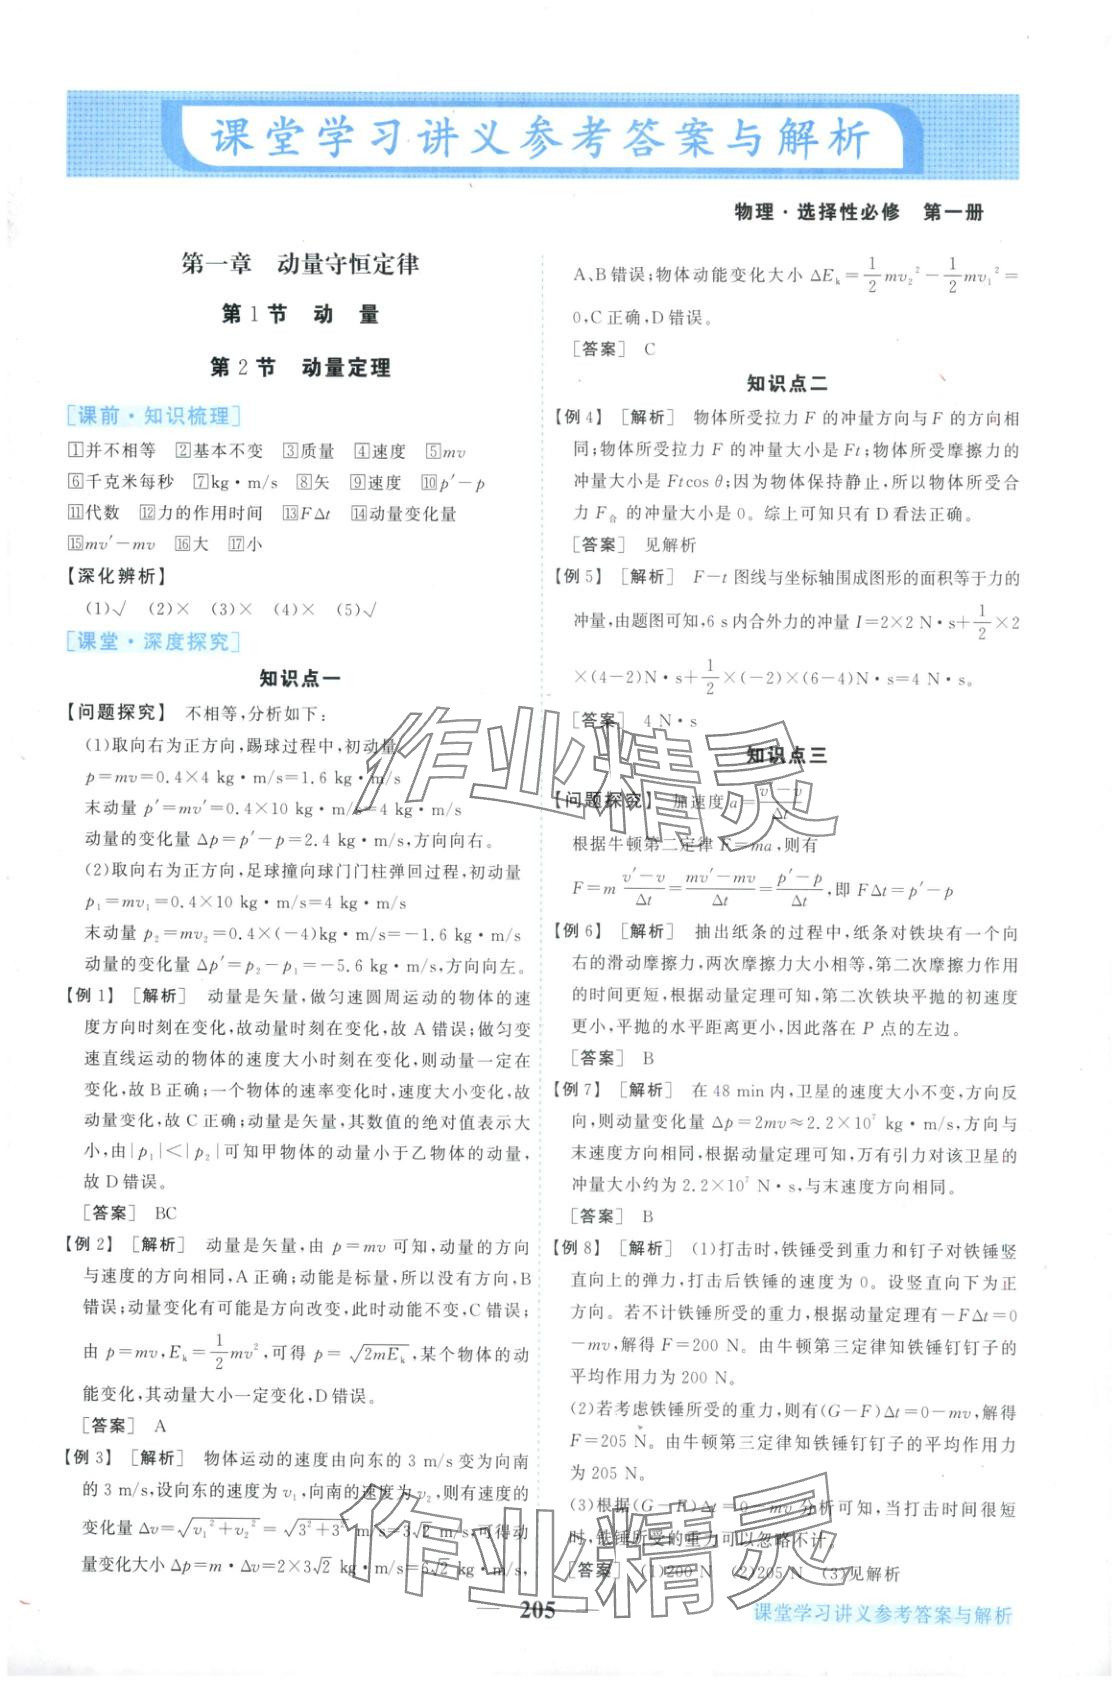 课堂学习讲义参考答案与解析
物理·选择性必修 第一册
第一章 动量守恒定律
第1节 动 量
第2节 动量定理
[课前·知识梳理]
1并不相等 2基本不变 3质量 4速度 5mv
6千克米每秒 7kg·m/s 8矢 9速度 10p′-p
11代数 12力的作用时间 13FΔt 14动量变化量
15mv′-mv 16大 17小
【深化辨析】
(1)√ (2)× (3)× (4)× (5)√
[课堂·深度探究]
知识点一
【问题探究】 不相等,分析如下:
(1)取向右为正方向,踢球过程中,初动量
p=mv=0.4×4 kg·m/s=1.6 kg·m/s
末动量 p′=mv′=0.4×10 kg·m/s=4 kg·m/s
动量的变化量 Δp=p′-p=2.4 kg·m/s,方向向右。
(2)取向右为正方向,足球撞向球门门柱弹回过程,初动量
p₁=mv₁=0.4×10 kg·m/s=4 kg·m/s
末动量 p₂=mv₂=0.4×(-4)kg·m/s=-1.6 kg·m/s
动量的变化量 Δp′=p₂-p₁=-5.6 kg·m/s,方向向左。
【例1】 [解析] 动量是矢量,做匀速圆周运动的物体的速
度方向时刻在变化,故动量时刻在变化,故 A 错误;做匀变
速直线运动的物体的速度大小时刻在变化,则动量一定在
变化,故 B 正确;一个物体的速率变化时,速度大小变化,故
动量变化,故 C 正确;动量是矢量,其数值的绝对值表示大
小,由|p₁|<|p₂|可知甲物体的动量小于乙物体的动量,
故 D 错误。
[答案] BC
【例2】 [解析] 动量是矢量,由 p=mv 可知,动量的方向
与速度的方向相同,A 正确;动能是标量,所以没有方向,B
错误;动量变化有可能是方向改变,此时动能不变,C 错误;
由 p=mv,Eₖ=1/2mv²,可得 p=√(2mEₖ),某个物体的动
能变化,其动量大小一定变化,D 错误。
[答案] A
【例3】 [解析] 物体运动的速度由向东的 3 m/s 变为向南
的 3 m/s,设向东的速度为 v₁,向南的速度为 v₂,则有速度的
变化量 Δv=√(v₁²+v₂²)=√(3²+3²) m/s=3√2 m/s,可得动
量变化大小 Δp=m·Δv=2×3√2 kg·m/s=6√2 kg·m/s,
A、B 错误;物体动能变化大小 ΔEₖ=1/2mv₂²-1/2mv₁²=
0,C 正确,D 错误。
[答案] C
知识点二
【例4】 [解析] 物体所受拉力 F 的冲量方向与 F 的方向相
同;物体所受拉力 F 的冲量大小是 Ft;物体所受摩擦力的
冲量大小是 Ftcos θ;因为物体保持静止,所以物体所受合
力 F合 的冲量大小是 0。综上可知只有 D 看法正确。
[答案] 见解析
【例5】 [解析] F-t 图线与坐标轴围成图形的面积等于力的
冲量,由题图可知,6 s内合外力的冲量 I=2×2 N·s+1/2×2
×(4-2)N·s+1/2×(-2)×(6-4)N·s=4 N·s。
[答案] 4 N·s
知识点三
【问题探究】 加速度 a=(v′-v)/Δt
根据牛顿第二定律 F=ma,则有
F=m(v′-v)/Δt=(mv′-mv)/Δt=(p′-p)/Δt,即 FΔt=p′-p
【例6】 [解析] 抽出纸条的过程中,纸条对铁块有一个向
右的滑动摩擦力,两次摩擦力大小相等,第二次摩擦力作用
的时间更短,根据动量定理可知,第二次铁块平抛的初速度
更小,平抛的水平距离更小,因此落在 P 点的左边。
[答案] B
【例7】 [解析] 在 48 min 内,卫星的速度大小不变,方向反
向,则动量变化量 Δp=2mv≈2.2×10⁷ kg·m/s,方向与
末速度方向相同,根据动量定理可知,万有引力对该卫星的
冲量大小约为 2.2×10⁷ N·s,与末速度方向相同。
[答案] B
【例8】 [解析] (1)打击时,铁锤受到重力和钉子对铁锤竖
直向上的弹力,打击后铁锤的速度为 0。设竖直向下为正
方向。若不计铁锤所受的重力,根据动量定理有-FΔt=0
-mv,解得 F=200 N。由牛顿第三定律知铁锤钉钉子的
平均作用力为 200 N。
(2)若考虑铁锤所受的重力,则有(G-F)Δt=0-mv,解得
F=205 N。由牛顿第三定律知铁锤钉钉子的平均作用力
为 205 N。
(3)根据(G-F)Δt=0-mv 分析可知,当打击时间很短
时,铁锤所受的重力可以忽略不计。
[答案] (1)200 N (2)205 N (3)见解析
作业精灵
作业精灵
205
课堂学习讲义参考答案与解析